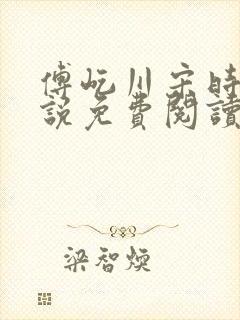 傅屹川宋時
說免費閱讀
梁智煥